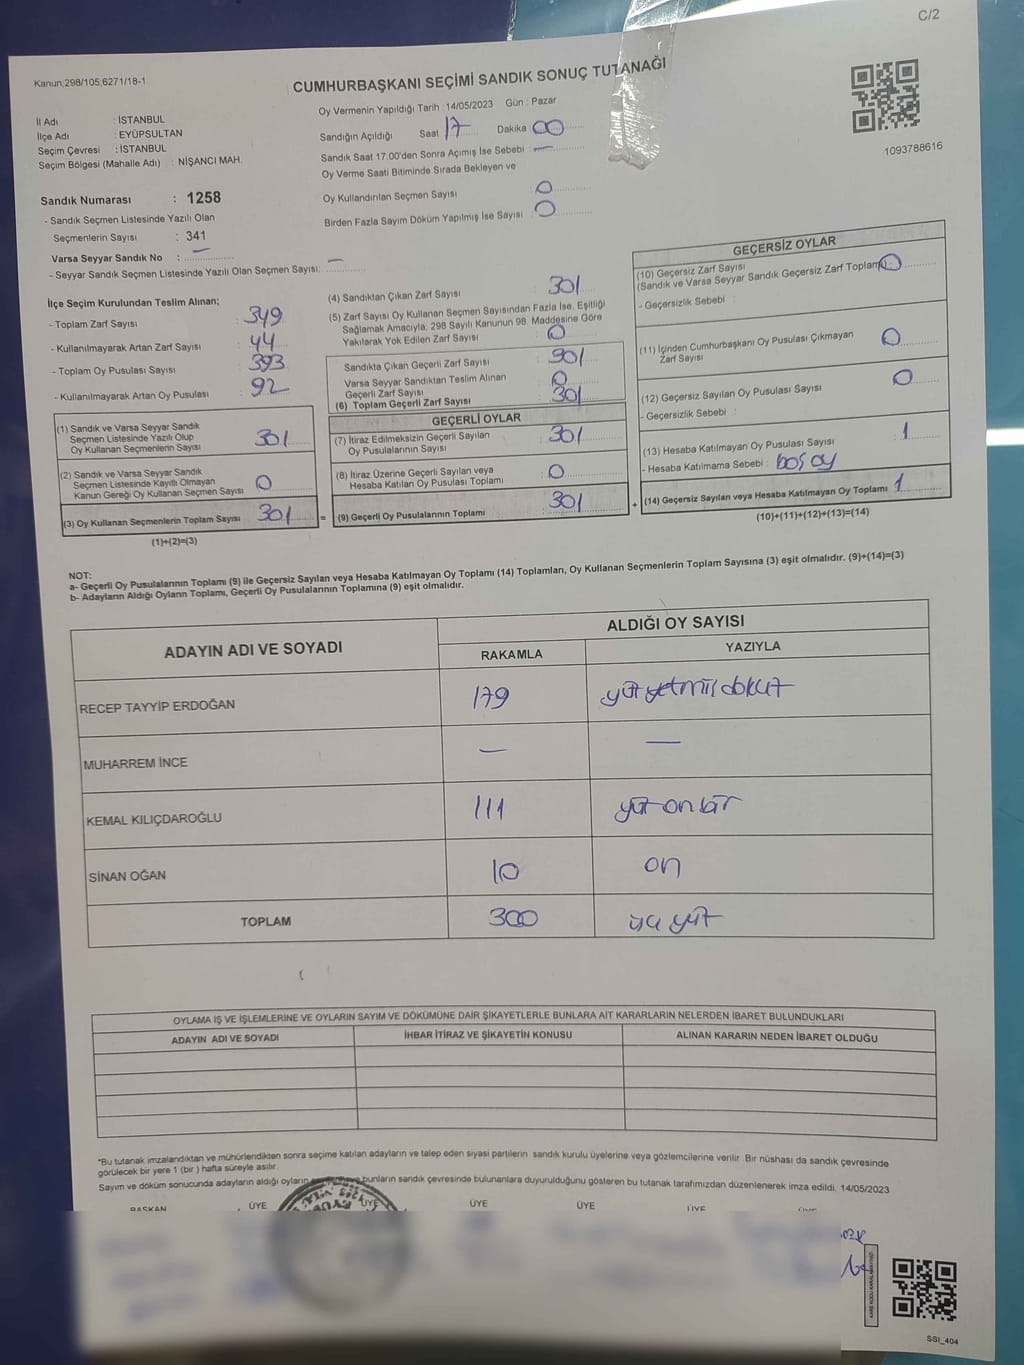 C/2
Kanun;298/105,6271/18-1
CUMHURBAŞKANI SEÇİMİ SANDIK SONUÇ TUTANAĞI
Oy Vermenin Yapıldığı Tarih : 14/05/2023 Gün : Pazar
İl Adı : İSTANBUL
İlçe Adı : EYÜPSULTAN
Seçim Çevresi : İSTANBUL
Seçim Bölgesi (Mahalle Adı) : NİŞANCI MAH.
Sandığın Açıldığı Saat 17 Dakika 00
Sandık Saat 17.00'den Sonra Açımış İse Sebebi : —
Oy Verme Saati Bitiminde Sırada Bekleyen ve
Oy Kullandırılan Seçmen Sayısı : 0
Birden Fazla Sayım Döküm Yapılmış İse Sayısı : 0
1093788616
Sandık Numarası : 1258
- Sandık Seçmen Listesinde Yazılı Olan
Seçmenlerin Sayısı : 341
Varsa Seyyar Sandık No : —
- Seyyar Sandık Seçmen Listesinde Yazılı Olan Seçmen Sayısı: —
İlçe Seçim Kurulundan Teslim Alınan;
- Toplam Zarf Sayısı : 349
- Kullanılmayarak Artan Zarf Sayısı : 44
- Toplam Oy Pusulası Sayısı : 393
- Kullanılmayarak Artan Oy Pusulası : 92
(1) Sandık ve Varsa Seyyar Sandık
Seçmen Listesinde Yazılı Olup
Oy Kullanan Seçmenlerin Sayısı : 301
(2) Sandık ve Varsa Seyyar Sandık
Seçmen Listesinde Kayıtlı Olmayan
Kanun Gereği Oy Kullanan Seçmen Sayısı : 0
(3) Oy Kullanan Seçmenlerin Toplam Sayısı 301 =
(1)+(2)=(3)
(4) Sandıktan Çıkan Zarf Sayısı : 301
(5) Zarf Sayısı Oy Kullanan Seçmen Sayısından Fazla İse, Eşitliği
Sağlamak Amacıyla, 298 Sayılı Kanunun 98. Maddesine Göre
Yakılarak Yok Edilen Zarf Sayısı : 0
Sandıkta Çıkan Geçerli Zarf Sayısı : 301
Varsa Seyyar Sandıktan Teslim Alınan
Geçerli Zarf Sayısı : 0
(6) Toplam Geçerli Zarf Sayısı : 301
GEÇERLİ OYLAR
(7) İtiraz Edilmeksizin Geçerli Sayılan
Oy Pusulalarının Sayısı : 301
(8) İtiraz Üzerine Geçerli Sayılan veya
Hesaba Katılan Oy Pusulası Toplamı : 0
(9) Geçerli Oy Pusulalarının Toplamı : 301 +
GEÇERSİZ OYLAR
(10) Geçersiz Zarf Sayısı
(Sandık ve Varsa Seyyar Sandık Geçersiz Zarf Toplamı) : 0
- Geçersizlik Sebebi :
(11) İçinden Cumhurbaşkanı Oy Pusulası Çıkmayan
Zarf Sayısı : 0
(12) Geçersiz Sayılan Oy Pusulası Sayısı : 0
- Geçersizlik Sebebi :
(13) Hesaba Katılmayan Oy Pusulası Sayısı : 1
- Hesaba Katılmama Sebebi : boş oy
(14) Geçersiz Sayılan veya Hesaba Katılmayan Oy Toplamı : 1
(10)+(11)+(12)+(13)=(14)
NOT:
a- Geçerli Oy Pusulalarının Toplamı (9) ile Geçersiz Sayılan veya Hesaba Katılmayan Oy Toplamı (14) Toplamları, Oy Kullanan Seçmenlerin Toplam Sayısına (3) eşit olmalıdır. (9)+(14)=(3)
b- Adayların Aldığı Oyların Toplamı, Geçerli Oy Pusulalarının Toplamına (9) eşit olmalıdır.
ADAYIN ADI VE SOYADI
ALDIĞI OY SAYISI
RAKAMLA YAZIYLA
RECEP TAYYİP ERDOĞAN 179 yüz yetmiş dokuz
MUHARREM İNCE — —
KEMAL KILIÇDAROĞLU 111 yüz on bir
SİNAN OĞAN 10 on
TOPLAM 300 üç yüz
OYLAMA İŞ VE İŞLEMLERİNE VE OYLARIN SAYIM VE DÖKÜMÜNE DAİR ŞİKAYETLERLE BUNLARA AİT KARARLARIN NELERDEN İBARET BULUNDUKLARI
ADAYIN ADI VE SOYADI İHBAR İTİRAZ VE ŞİKAYETİN KONUSU ALINAN KARARIN NEDEN İBARET OLDUĞU
*Bu tutanak imzalandıktan ve mühürlendikten sonra seçime katılan adayların ve talep eden siyasi partilerin sandık kurulu üyelerine veya gözlemcilerine verilir. Bir nüshası da sandık çevresinde
görülecek bir yere 1 (bir ) hafta süreyle asılır.
Sayım ve döküm sonucunda adayların aldığı oyların bunların sandık çevresinde bulunanlara duyurulduğunu gösteren bu tutanak tarafımızdan düzenlenerek imza edildi. 14/05/2023
BAŞKAN ÜYE ÜYE ÜYE ÜYE ÜYE ÜYE
SSI_404